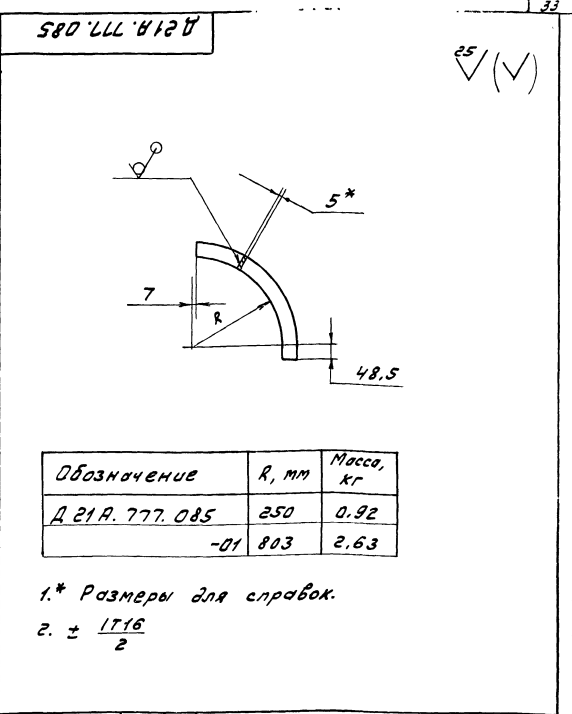 33
Д21А.777.085
25
5*
7
R
48,5
Обозначение R, мм Масса, кг
Д21А.777.085 250 0.92
-01 803 2,63
1.* Размеры для справок.
2. ± IT16/2